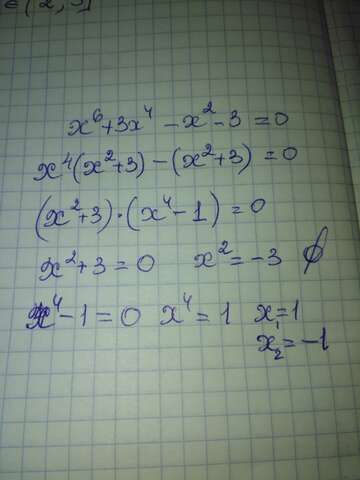 x⁶+3x⁴-x²-3=0
x⁴(x²+3)-(x²+3)=0
(x²+3)·(x⁴-1)=0
x²+3=0 x²=-3 ∅
x⁴-1=0 x⁴=1 x₁=1
x₂=-1